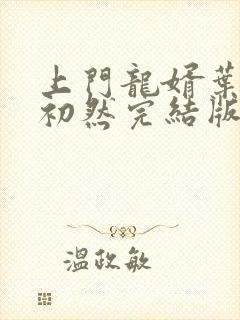 上門龍婿葉
初然完結版
溫政敏